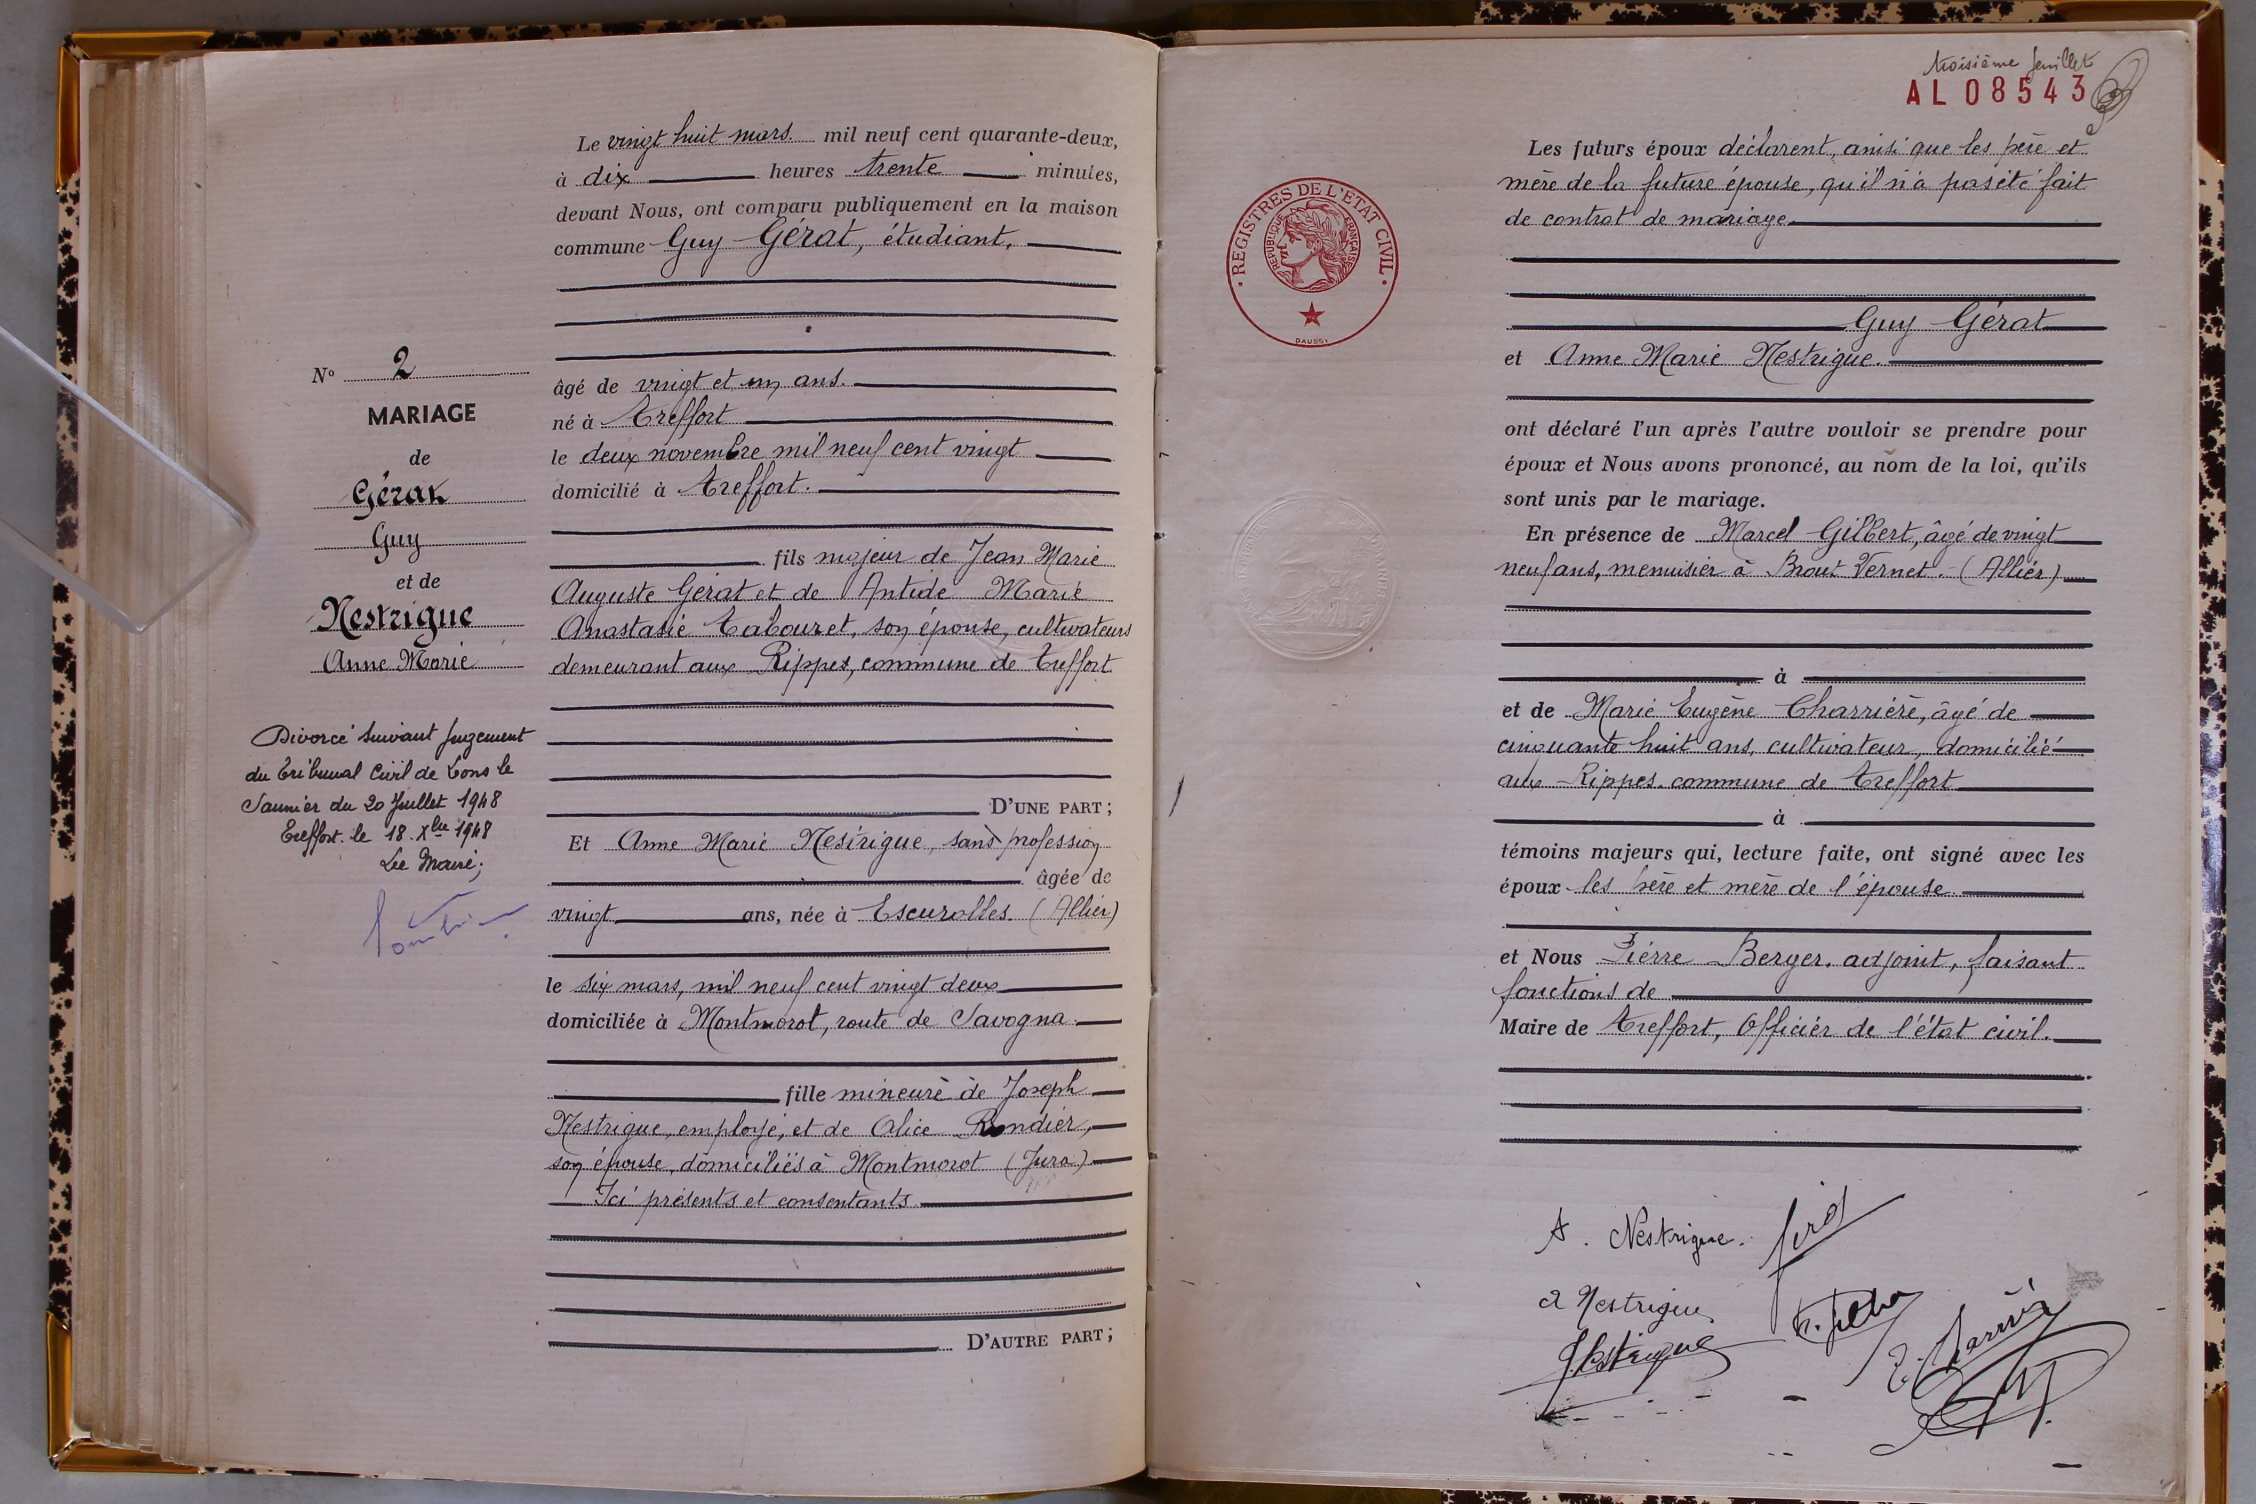 Le vingt huit mars. mil neuf cent quarante-deux,
à dix heures trente minutes,
devant Nous, ont comparu publiquement en la maison
commune Guy Gérat, étudiant,
âgé de vingt et un ans.
né à Treffort
le deux novembre mil neuf cent vingt
domicilié à Treffort.
fils majeur de Jean Marie
Auguste Gérat et de Antide Marie
Anastasie Tabouret, son épouse, cultivateurs
demeurant aux Rippes, commune de Treffort
D'UNE PART;
Et Anne Marie Nestrigue, sans profession
âgée de
vingt ans, née à Escurolles. (Allier)
le six mars, mil neuf cent vingt deux
domiciliée à Montmorot, route de Savogna
fille mineure de Joseph
Nestrigue, employé, et de Alice Rondier,
son épouse, domiciliés à Montmorot (Jura)
Ici présents et consentants
D'AUTRE PART;
N° 2
MARIAGE
de
Gérat
Guy
et de
Nestrigue
Anne Marie
Divorcé suivant jugement
du Tribunal Civil de Lons le
Saunier du 20 Juillet 1948
Treffort. le 18. Xbre 1948
Le Maire;
troisième feuillet
AL08543
REGISTRES DE L'ÉTAT CIVIL
RÉPUBLIQUE FRANÇAISE
DAUSSY
Les futurs époux déclarent, ainsi que les père et
mère de la future épouse, qu'il n'a pas été fait
de contrat de mariage
Guy Gérat
et Anne Marie Nestrigue.
ont déclaré l'un après l'autre vouloir se prendre pour
époux et Nous avons prononcé, au nom de la loi, qu'ils
sont unis par le mariage.
En présence de Marcel Gilbert, âgé de vingt
neuf ans, menuisier à Brout Vernet. (Allier)
à
et de Marie Eugène Charrière, âgé de
cinquante huit ans, cultivateur, domicilié
aux Rippes. commune de Treffort
à
témoins majeurs qui, lecture faite, ont signé avec les
époux les père et mère de l'épouse
et Nous Pierre Berger. adjoint, faisant
fonctions de
Maire de Treffort, Officier de l'état civil.
A. Nestrigue.
a Nestrigue
Nestrigue